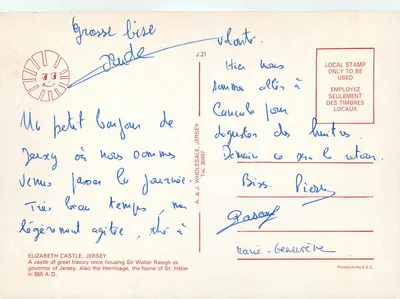 Grosse bise
Aude
Un petit bonjour de
Jersey où nous sommes
venus passer la journée.
Très beau temps, mer
légèrement agitée, thé à
volonté.
Hier nous
sommes allés à
Cancale pour
déguster des huitres.
Demain ce sera le retour.
Bises Pierre
Pascal
Marie-Geneviève
J.21
A. & J. WHOLESALE, JERSEY
Tel. 30497
LOCAL STAMP
ONLY TO BE
USED
EMPLOYEZ
SEULEMENT
DES TIMBRES
LOCAUX
ELIZABETH CASTLE, JERSEY
A castle of great history once housing Sir Walter Ralegh as
governor of Jersey. Also the Hermitage, the home of St. Hélier
in 555 A.D.
Printed in the E.E.C.